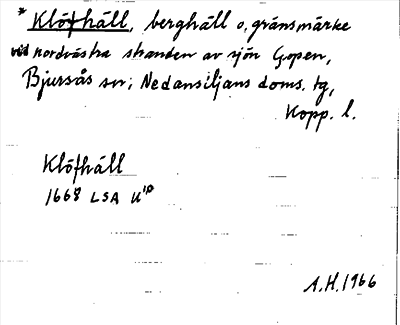 * Klöfhäll, berghäll o. gränsmärke
vid nordvästra stranden av sjön Gopen,
Bjursås sn; Nedansiljans doms. tg,
Kopp. l.
Klöfhäll
1668 LSA U¹⁰
A.H. 1966